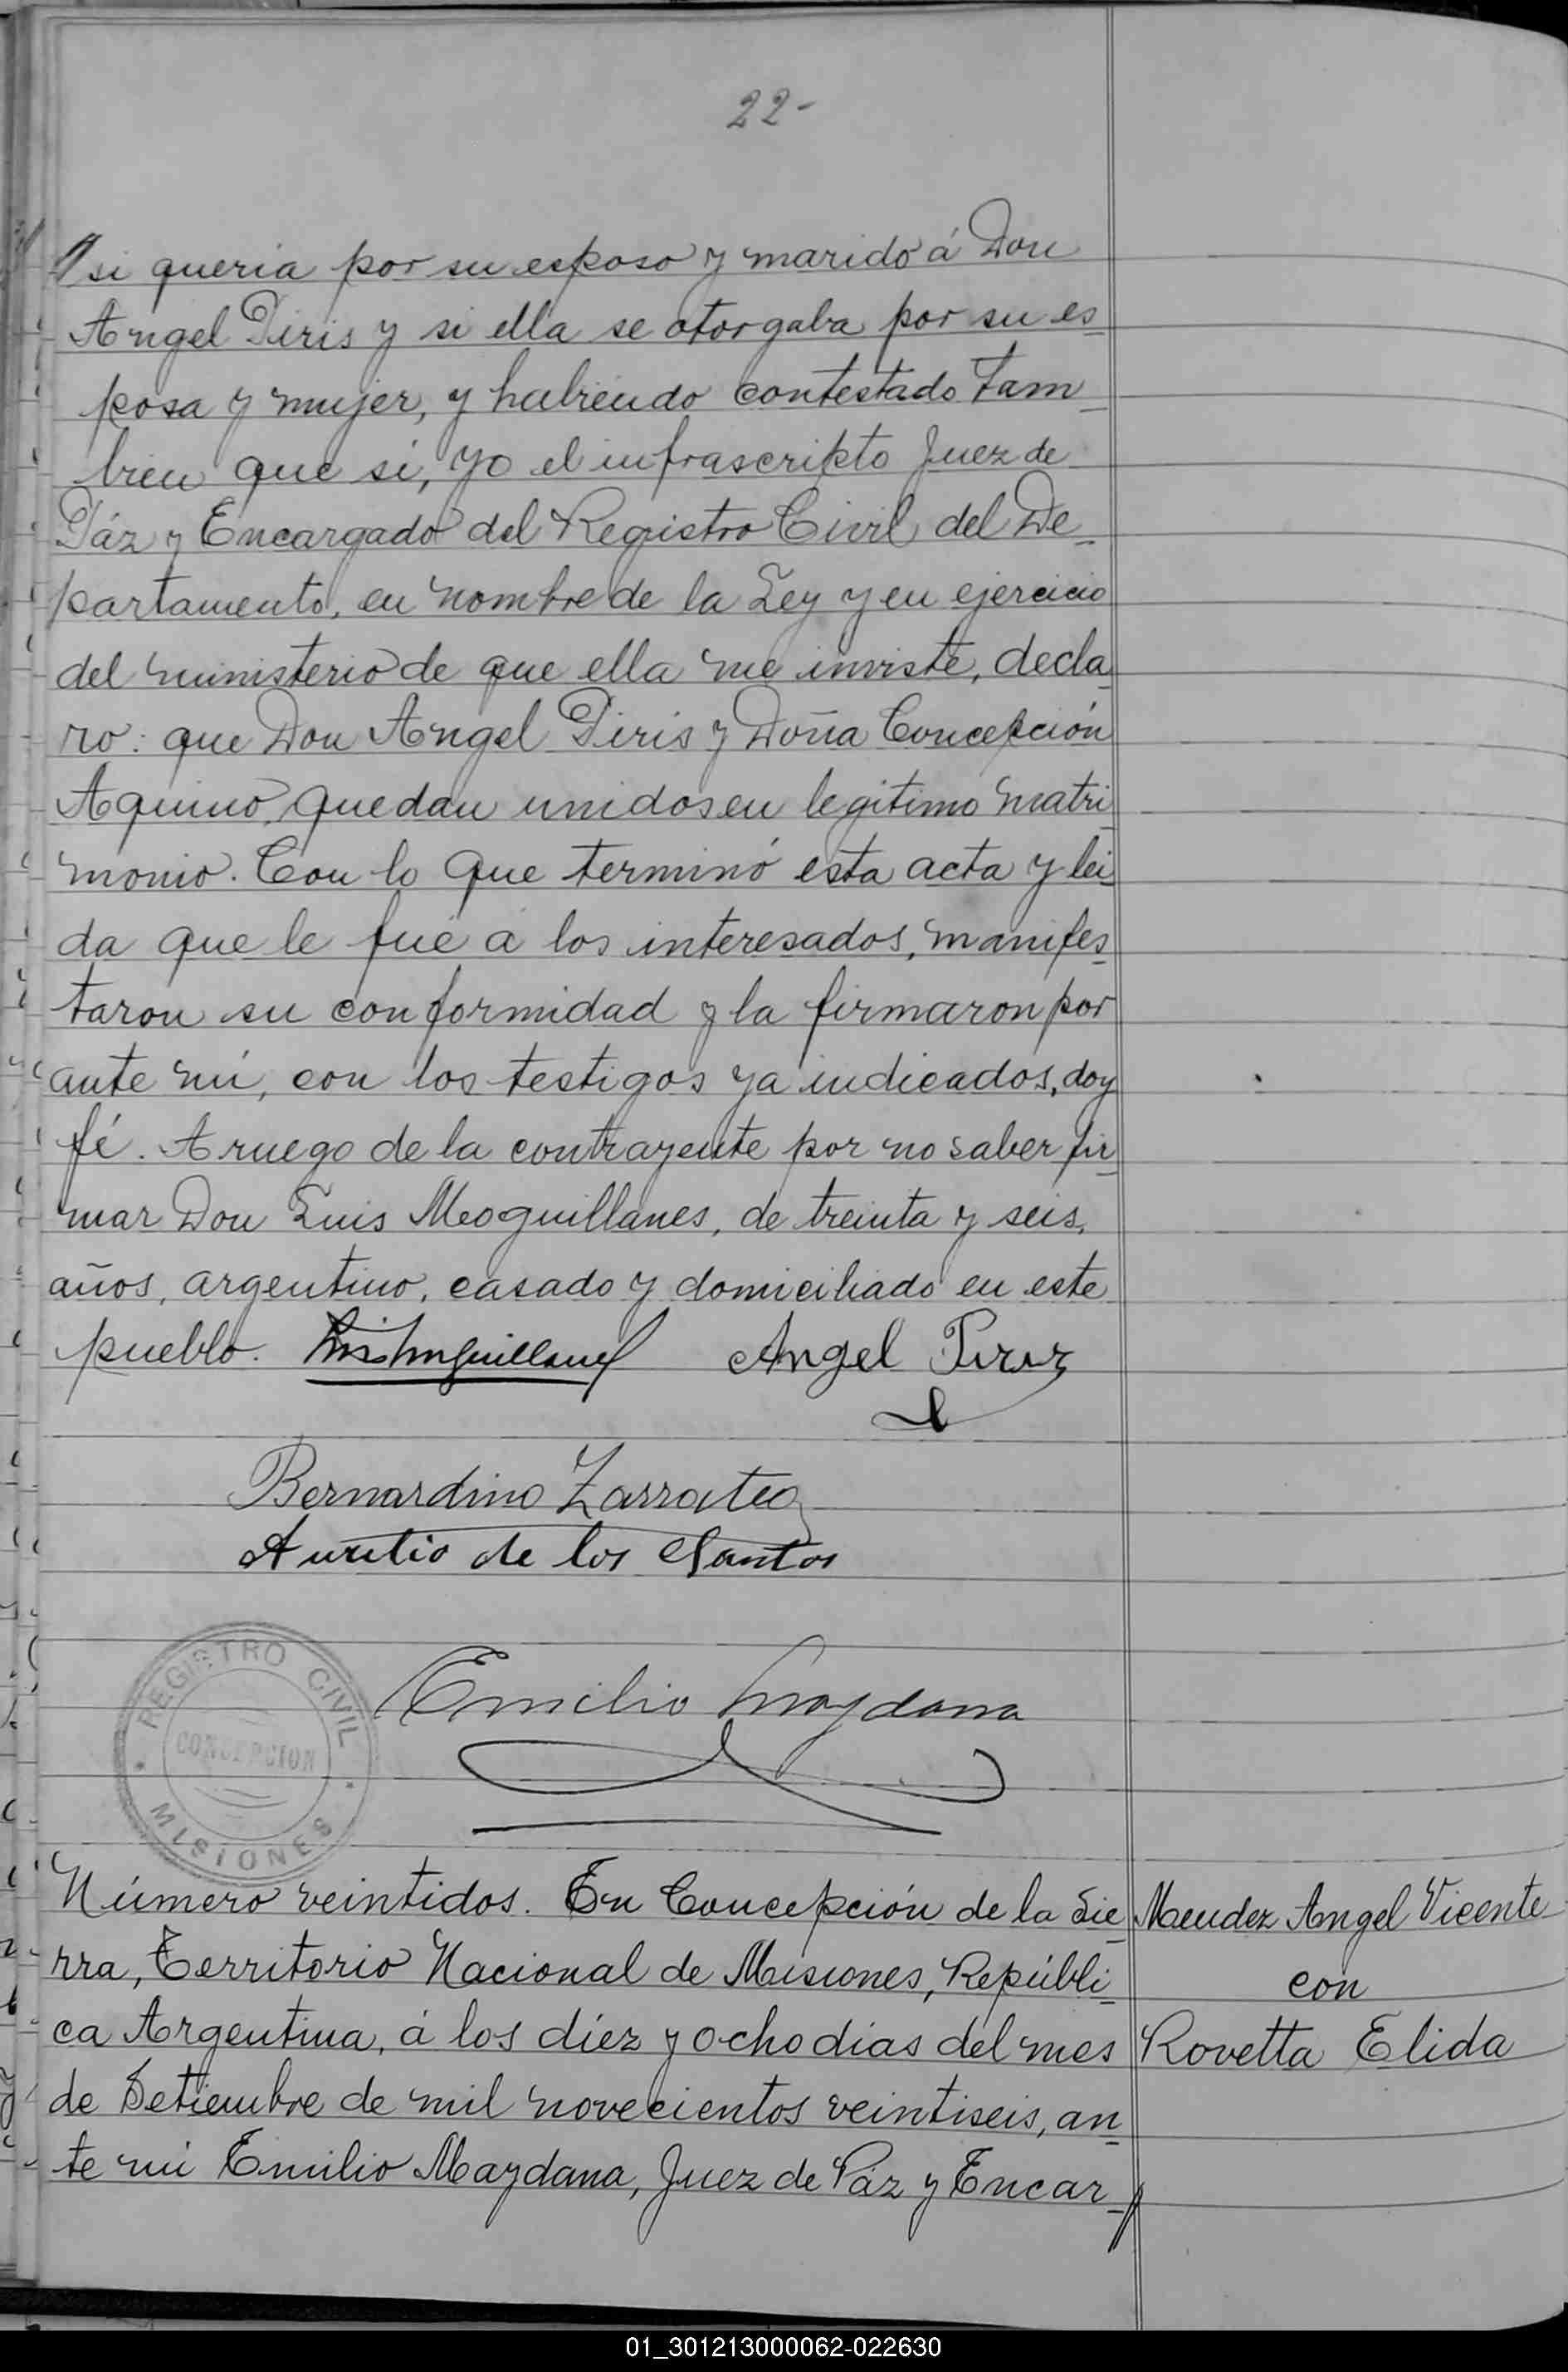 22-
si queria por su esposo y marido á Don
Angel Piris y si ella se otorgaba por su es
posa y mujer, y habiendo contestado tam
bien que si, yo el infrascripto Juez de
Páz y Encargado del Registro Civil del De
partamento, en nombre de la Ley y en ejercicio
del ministerio de que ella me inviste, decla
ro: que Don Angel Piris y Doña Concepción
Aquino, quedan unidos en legitimo matri
monio. Con lo que terminó esta acta y lei
da que le fué á los interesados, manifes
taron su conformidad y la firmaron por
ante mi, con los testigos ya indicados, doy
fé. A ruego de la contrayente por no saber fir
mar Don Luis Moguillanes, de treinta y seis
años, argentino, casado y domiciliado en este
pueblo. Angel Piriz
Bernardino Zarratea
Aurelio de los Santos
Emilio Maydana
REGISTRO CIVIL
CONCEPCION
MISIONES
Número veintidos. En Concepción de la Sie
Mendez Angel Vicente
rra, Territorio Nacional de Misiones, Repúbli
con
ca Argentina, á los diez y ocho dias del mes
Rovetta Elida
de Setiembre de mil novecientos veintiseis, an
te mi Emilio Maydana, Juez de Páz y Encar
01_301213000062-022630